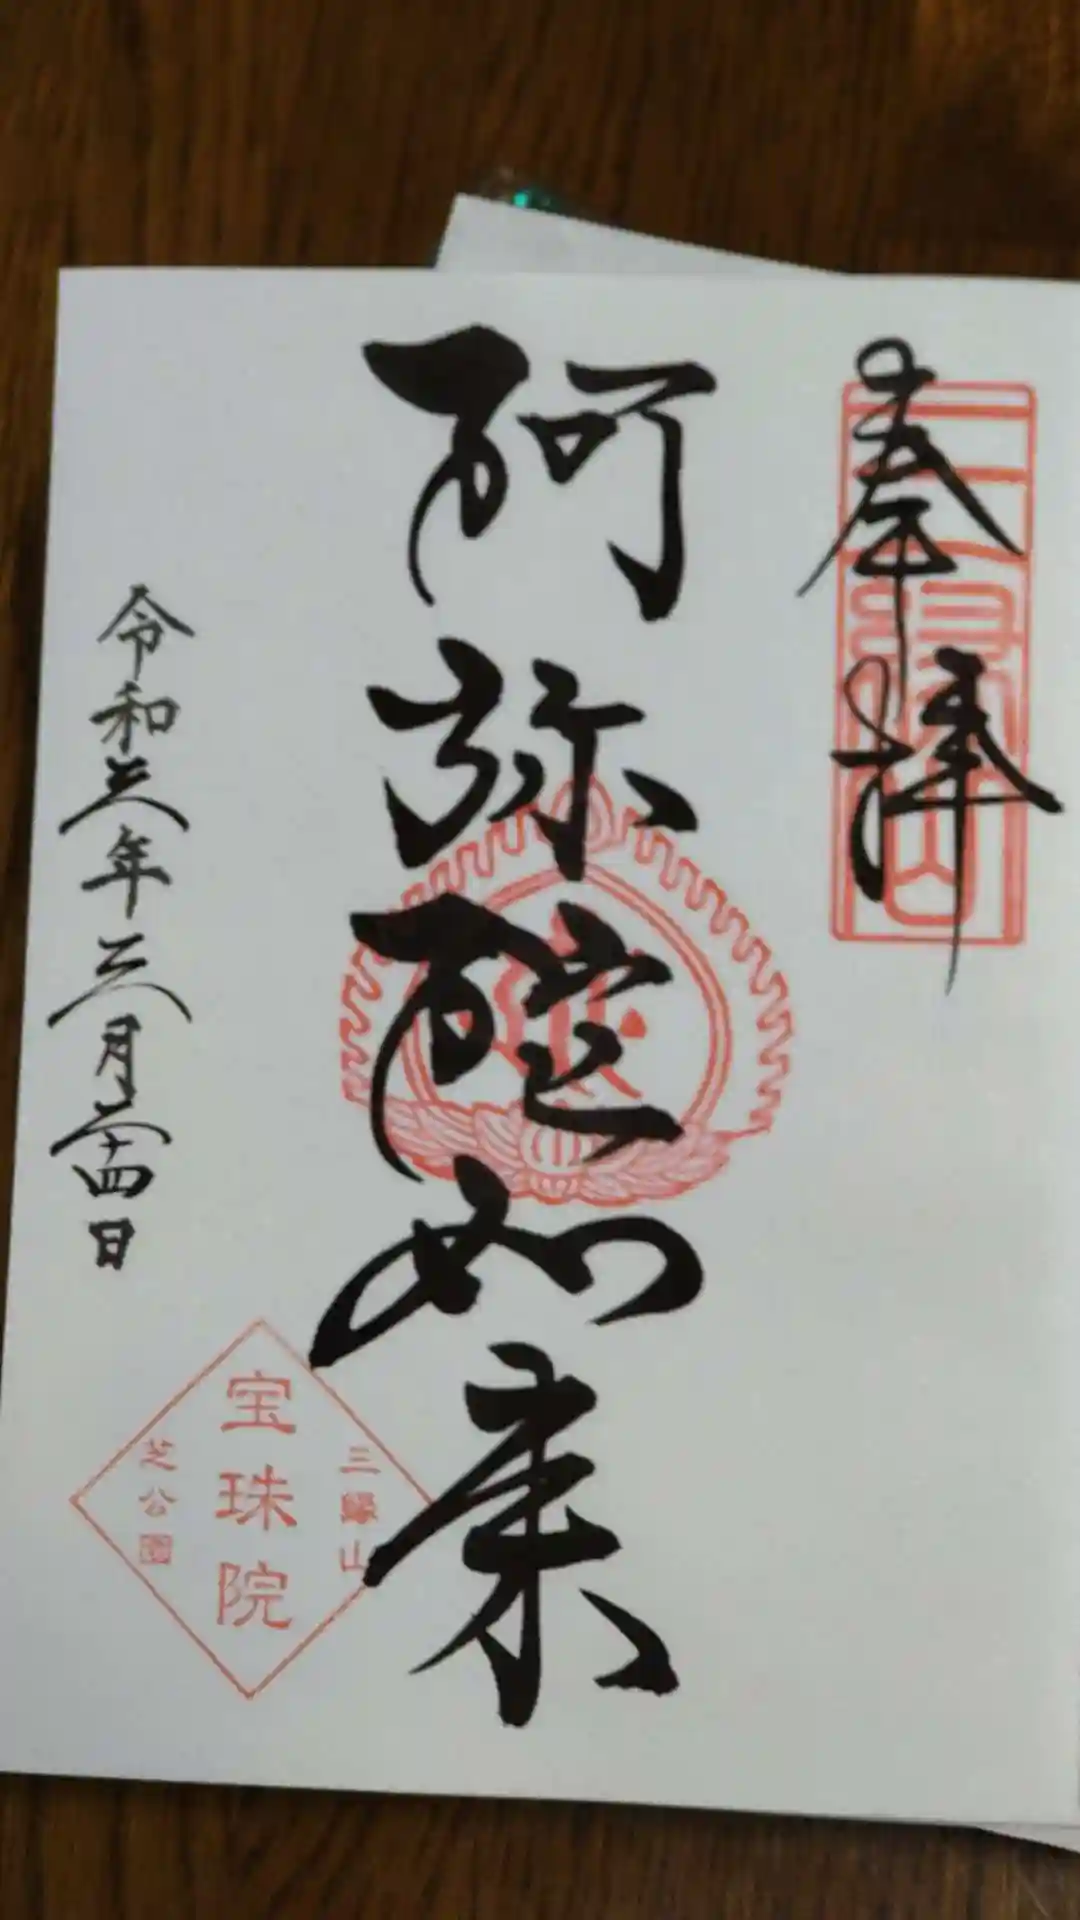 奉拝
三縁山
阿弥陀如来
令和三年三月二十四日
三縁山
宝珠院
芝公園